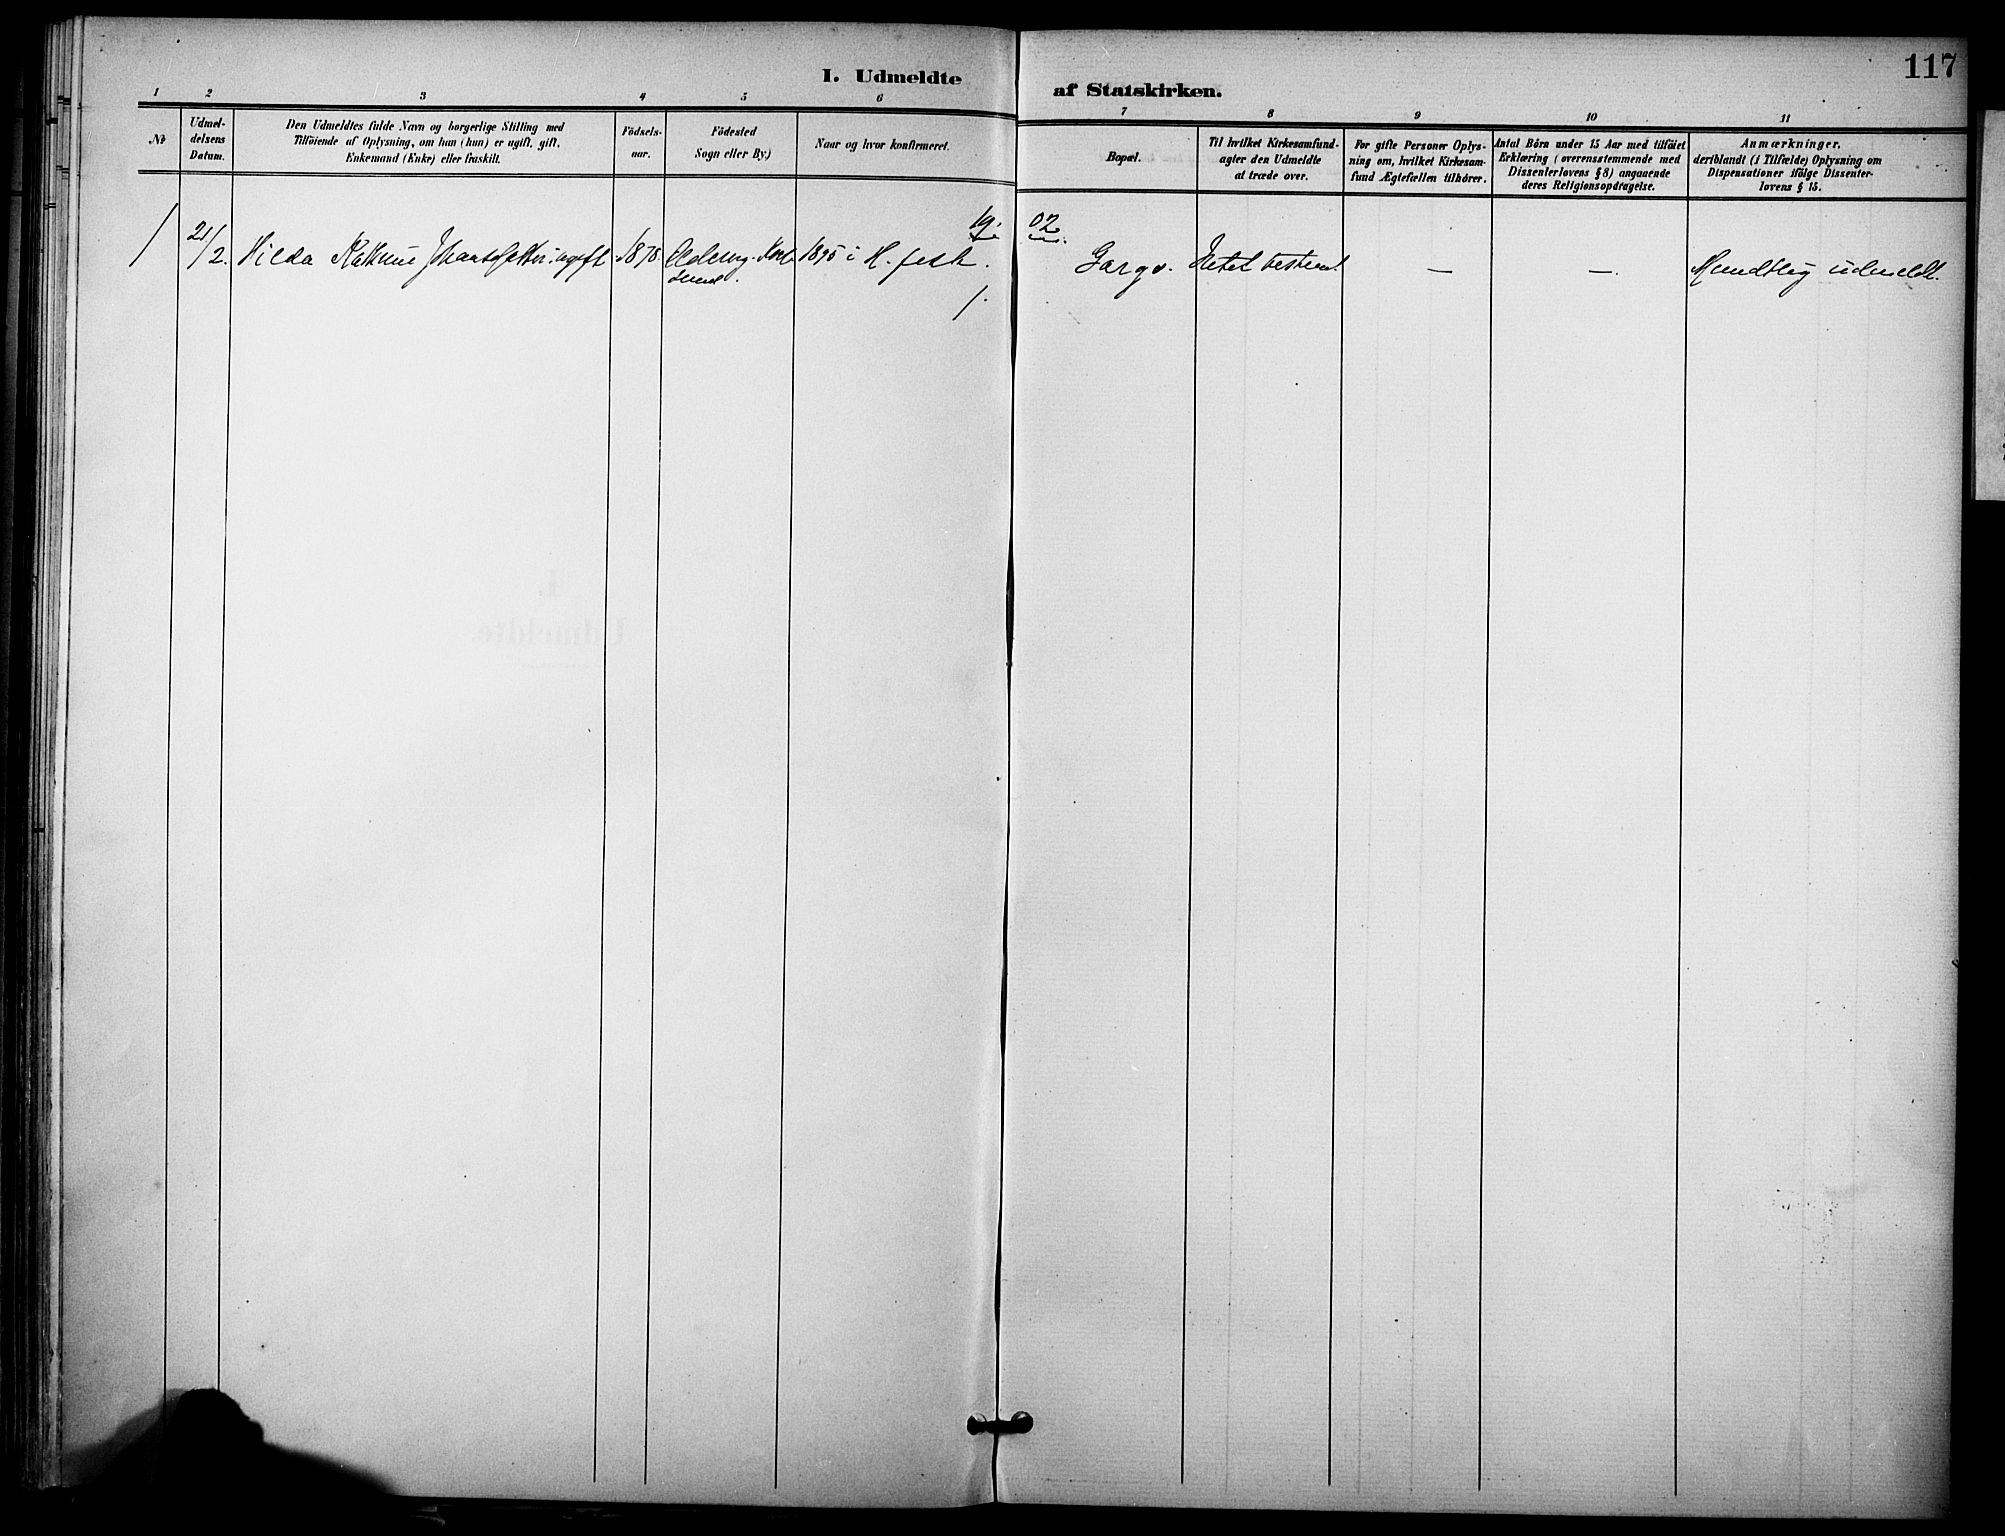 117
I. Udmeldte af Statskirken.
1 2 3 4 5 6 7 8 9 10 11
No
Udmel-
delsens
Datum.
Den Udmeldtes fulde Navn og borgerlige Stilling med
Tilføiende af Oplysning, om han (hun) er ugift, gift,
Enkemand (Enke) eller fraskilt.
Fødsels-
aar.
Fødested
Sogn eller By.)
Naar og hvor konfirmeret.
Bopæl.
Til hvilket Kirkesamfund-
agter den Udmeldte
at træde over.
For gifte Personer Oplys-
ning om, hvilket Kirkesam-
fund Ægtefællen tilhører.
Antal Børn under 15 Aar med tilføiet
Erklæring (overensstemmende med
Dissenterlovens § 8) angaaende
deres Religionsopdragelse.
Anmærkninger,
deriblandt (i Tilfælde) Oplysning om
Dispensationer ifølge Dissenter-
lovens § 15.
19 02.
1 21/2. Hilda ugift 1878. 1895 i H. fest. Gargo. Intet bestemt — — Mundtlig udmeldt.
1.
I.
Udmeldte.